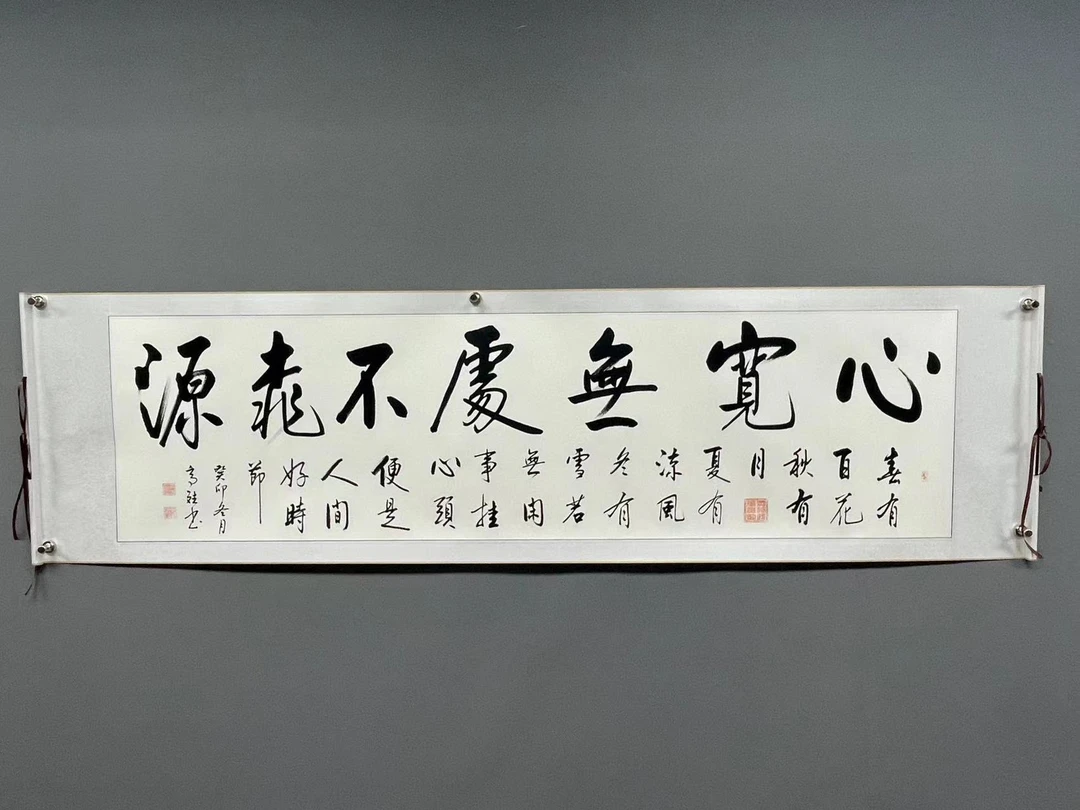 心寬無處不桃源
春有
百花
秋有
月
夏有
涼風
冬有
雪若
無閑
事挂
心頭
便是
人間
好時
節
癸卯冬月